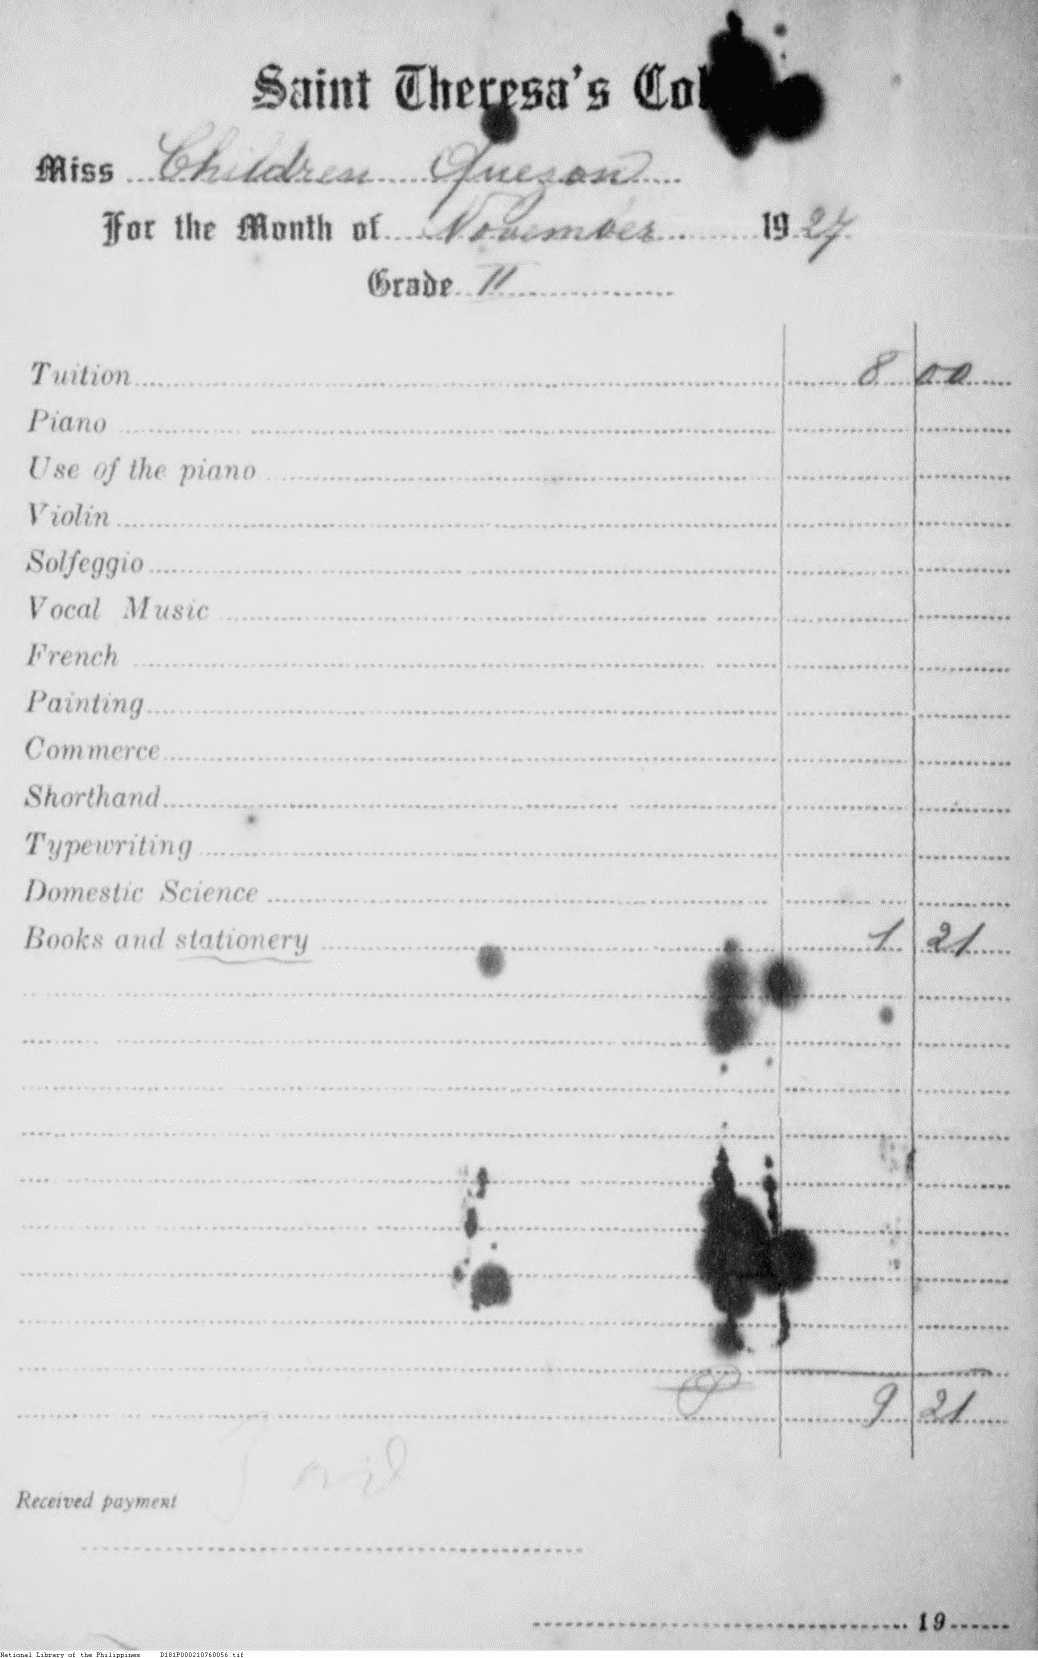 Saint Theresa's Col
Miss Children Quezon
For the Month of November 1927
Grade II
Tuition 8 00
Piano
Use of the piano
Violin
Solfeggio
Vocal Music
French
Painting
Commerce
Shorthand
Typewriting
Domestic Science
Books and stationery 1 21
P 9 21
Paid
Received payment
19
National Library of the Philippines D181P000210760056.tif